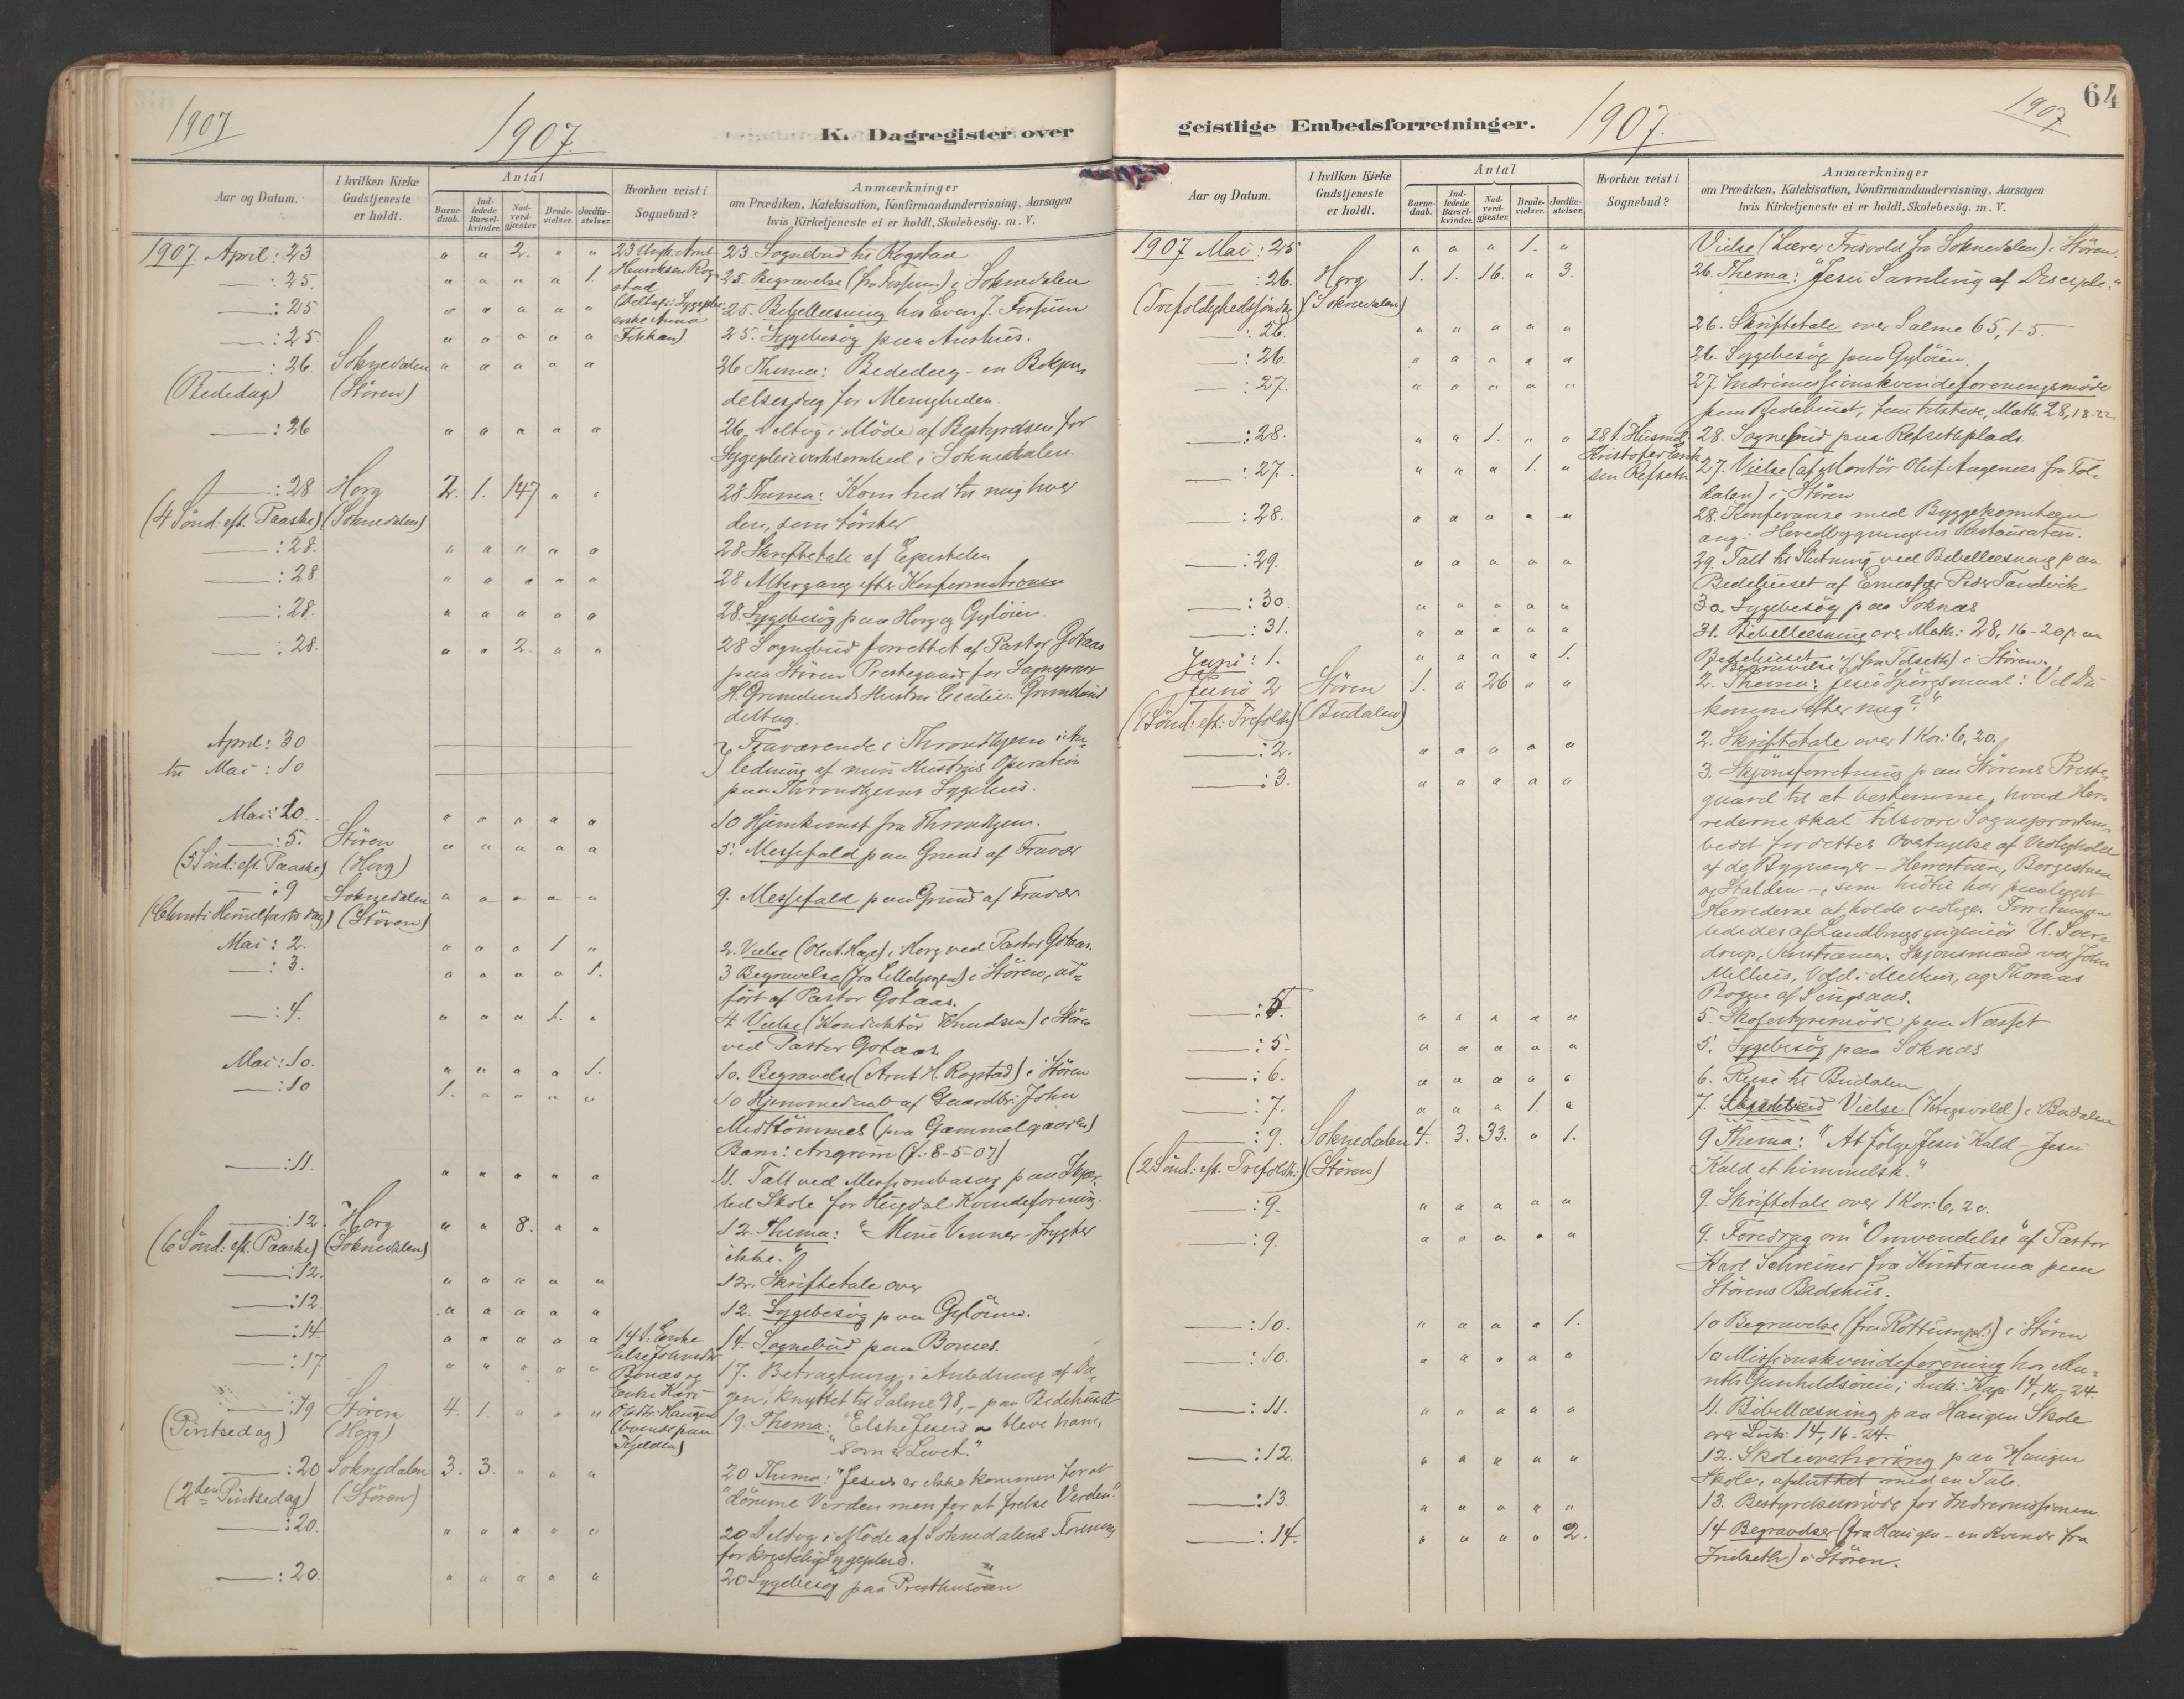 1907.
1907
K. Dagregister over
Aar og Datum.
I hvilken Kirke Gudstjeneste er holdt.
Antal
Barne-daab.
Ind-ledede Barsel-kvinder.
Nad-verd-gjæster.
Brude-vielser.
Jordfæ-stelser.
Hvorhen reist i Sognebud?
Anmærkninger
om Prædiken, Katekisation, Konfirmandundervisning, Aarsagen
hvis Kirketjeneste ei er holdt, Skolebesög. m. V.
1907 April: 23 " " 2. " " 23 Ungk. Arnt Henriksen Rogstad 23. Sognebud til Rogstad
: 25. " " " " 1. 25. Begravelse (fra ) i Soknedalen
: 25 " " " " " (Deltog: Sygeplei-erske Anna ). 25. Bibellæsning hos Even J.
: 25 " " " " " 25. Sygebesøg paa
: 26. Soknedalen " " " " " 26 Thema: Bededag - en
(Bededag) (Støren) delsesdag for Menigheden.
: 26 " " " " " 26. Deltog i Møde af Bestyrelsen for
Sygepleievirksomhed i Soknedalen.
: 28 Horg 2. 1. 147 " " 28 Thema: Kom hid til mig hver
(4 Sønd: eft. Paaske) (Soknedalen) den, som tørster
: 28. " " " " " 28 Skriftetale af Epistelen
: 28 " " " " " 28 Altergang efter Konfirmationen
: 28. " " " " " 28. Sygebesøg paa Horg og Gyløien.
: 28. " " 2. " " 28 Sognebud forrettet af Pastor Gotaas
paa Støren Prestegaard for Sogneprest
H. Grundunds Hustru Cecilie Grundund
deltog.
April: 30 Fraværende i Throndhjem i An-
til Mai: 10 ledning af min Hustrus Operation
paa Throndhjems Sygehus.
Mai: 10. " " " " " 10 Hjemkomst fra Throndhjem.
: 5. Støren " " " " " 5. Messefald paa Grund af Fravær
(5 Sønd: eft. Paaske) (Horg)
: 9 Soknedalen " " " " " 9. Messefald paa Grund af Fravær.
(Christi Himmelfarts dag) (Støren)
Mai: 2. " " " 1 " 2. Vielse ( ) i Horg ved Pastor Gotaas.
: 3. " " " " 1. 3 Begravelse (fra ) i Støren, ud-
ført af Pastor Gotaas.
: 4. " " " 1. " 4 Vielse (Konduktør Knudsen) i Støren
ved Pastor Gotaas.
Mai: 10. " " " " 1. 10. Begravelse (Arnt H. Rogstad) i Støren
: 10 1. " " " " 10 Hjemmedaab af Gaardbr. John
Midttømmes (paa Gammelgaarden)
Barn: Arngrim (f. 8-5-07)
: 11. " " " " " 11. Talt ved Missionsbasar paa
Skole for Hugdal Kvindeforening.
: 12. Horg " " 8. " " 12. Thema: "Mine Venner - frygter
(6 Sønd: eft. Paaske) (Soknedalen) ikke."
: 12. " " " " " 12. Skriftetale over
: 12 " " " " " 12. Sygebesøg paa Gyløien.
: 14 " " " " " 14 1. Enke Else Johnsdtr Bonæs og Enke Kari Olsdtr. Haugen (boende paa Kjelden) 14. Sognebud paa Bones.
: 17 " " " " " 17. Betragtning, i Anledning af Da-
gen, knyttet til Salme 98, - paa Bedehuset
: 19. Støren 4. 1. " " " 19. Thema: "Elske Jesus - blive ham,
(Pintsedag) (Horg) som er Livet."
: 20 Soknedalen 3. 3. " " " 20 Thema: "Jesus er ikke kommen for at
(2den Pintsedag) (Støren) dømme Verden men for at frelse Verden."
: 20. " " " " " 20 Deltog i Møde af Soknedalens Forening
for kristelig Sygepleie.
: 20. " " " " " 20 Sygebesøg paa Presthusøien
64
1907
geistlige Embedsforretninger.
1907.
Aar og Datum.
I hvilken Kirke Gudstjeneste er holdt.
Antal
Barne-daab.
Ind-ledede Barsel-kvinder.
Nad-verd-gjæster.
Brude-vielser.
Jordfæ-stelser.
Hvorhen reist i Sognebud?
Anmærkninger
om Prædiken, Katekisation, Konfirmandundervisning, Aarsagen
hvis Kirketjeneste ei er holdt, Skolebesög. m. V.
1907 Mai: 25 " " " 1. " Vielse (Lærer Fresvold fra Soknedalen) i Støren.
: 26. Horg 1. 1. 16. " 3. 26. Thema: "Jesu Samling af Disciple."
(Trefoldighedssøndag) (Soknedalen)
: 26. " " " " " 26. Skriftetale over Salme 65, 1-5.
: 26. " " " " " 26. Sygebesøg paa Gyløien.
: 27. " " " " " 27. Indremissionskvindeforeningsmøde
paa Bedehuset, fem tilstede, Math. 28, 18-22
: 28. " " 1. " " 28 1. Husmd. Kristofer Eriksen Refseth 28. Sognebud paa Refsethplads.
: 27. " " " 1. " 27. Vielse (af Montør Oluf Aagenæs fra Fol-
dalen) i Støren
: 28. " " " " " 28. Konferanse med Byggekomiteen
ang: Hovedbygningens Restauration.
: 29. " " " " " 29. Talt til Slutning ved Bibellæsning paa
Bedehuset af Emissær Peder Tandvik
: 30. " " " " " 30. Sygebesøg paa Soknæs
: 31. " " " " " 31. Bibellæsning over Math: 28, 16-20 paa
Bedehuset
Juni: 1. " " " " 1. Begravelse (fra Folseth) i Støren.
Juni 2 Støren 1. " 26 " " 2. Thema: Jesu Spørgsmaal: Vil Du
(1 Sønd: eft: Trefoldh) (Budalen) komme efter mig?"
: 2. " " " " " 2. Skriftetale over 1 Kor: 6, 20.
: 3. " " " " " 3. Skjønsforretning paa Størens Preste-
gaard til at bestemme, hvad Her-
rederne skal tilsvare Sogneprestem-
bedet for dettes Overtagelse af Vedligehold
af de Bygninger - Herrestuen, Borgestuen
og Stalden -, som hidtil har paaligget
Herrederne at holde vedlige. Forretningen
lededes af Landbrugsingeniør U. Sver-
drup, Kristiania. Skjønsmænd var John
Melhus, Vold i Melhus, og Thomas
Bogen af Singsaas.
: 5. " " " " " 5. Skolestyremøde paa Næsset
: 5 " " " " " 5. Sygebesøg paa Soknæs
: 6. " " " " " 6. Reise til Budalen
: 7. " " " 1. " 7. Vielse (Kregsvold) i Budalen
: 9. Soknedalen 4. 3. 33. " 1. 9 Thema: "At følge Jesu Kald - Jesu
(2 Sønd: eft. Trefoldh:) (Støren) Kald et himmelsk."
: 9. " " " " " 9. Skriftetale over 1 Kor: 6, 20.
: 9. " " " " " 9. Foredrag om "Omvendelse" af Pastor
Karl Schreiner fra Kristiania paa
Størens Bedehus.
: 10. " " " " 1. 10 Begravelse (fra Rottumpl:) i Støren
: 10. " " " " " 10 Missionskvindeforening hos
Gunhildsøien; Luk: Kap. 14, 16-24.
: 11. " " " " " 11. Bibellæsning paa Haugen Skole
over Luk: 14, 16-24.
: 12. " " " " " 12. Skoleoverhøring paa Haugen
Skole, afsluttet med en Tale.
: 13. " " " " " 13. Bestyrelsesmøde for Indremissionen.
: 14. " " " " 2. 14 Begravelser (fra Haugen - en Kvinde fra
) i Støren.